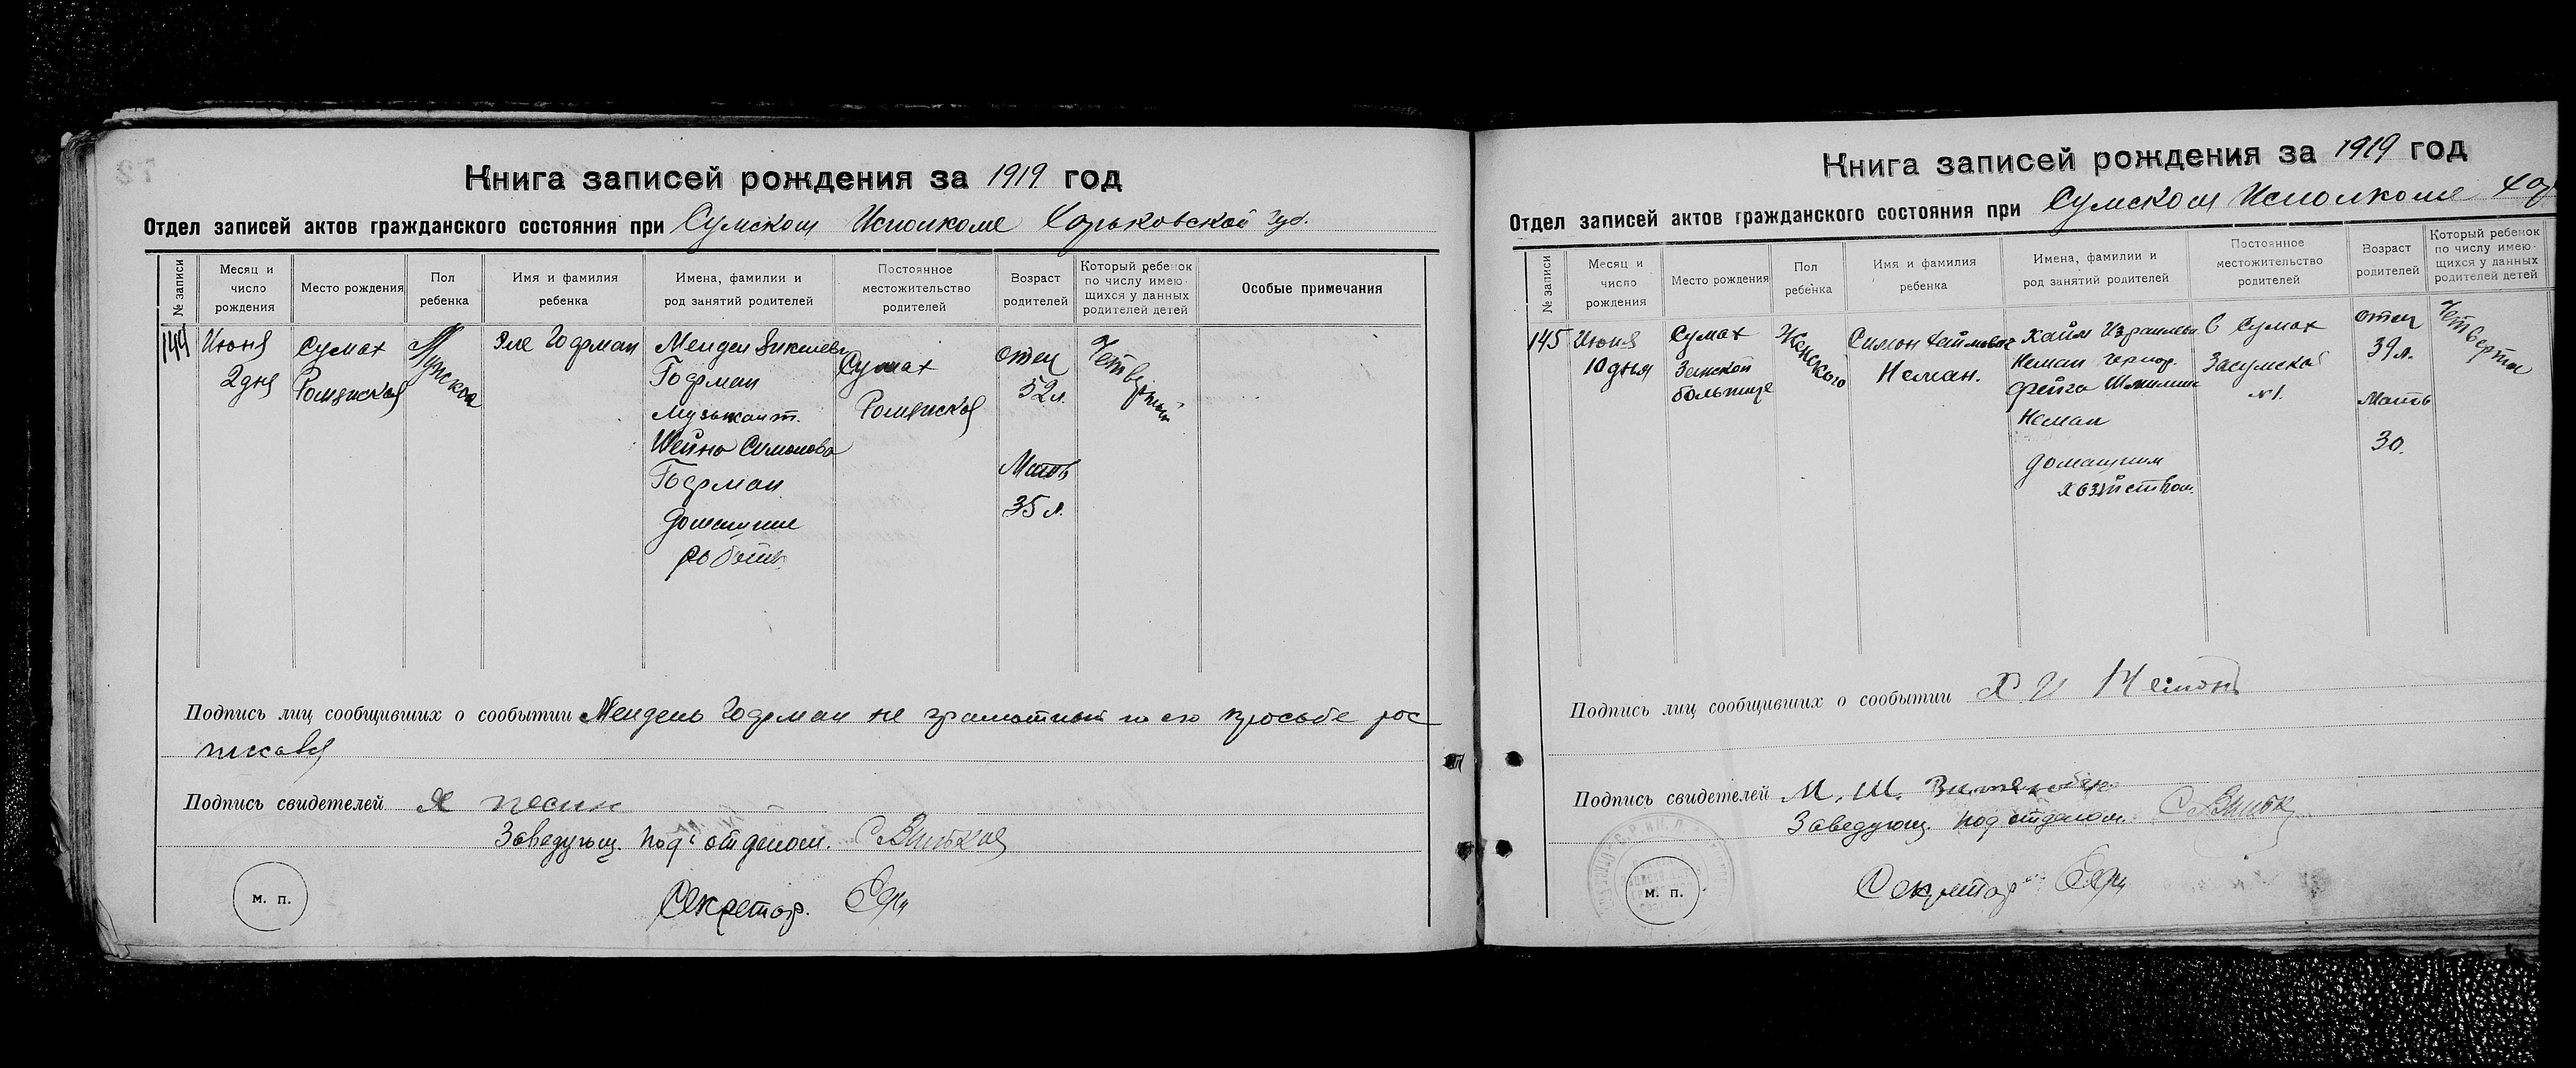 Книга записей рождения за 1919 год
Отдел записей актов гражданского состояния при Сумском Исполкоме Харьковской губ.
№ записи
Месяц и число рождения
Место рождения
Пол ребенка
Имя и фамилия ребенка
Имена, фамилии и род занятий родителей
Постоянное местожительство родителей
Возраст родителей
Который ребенок по числу имеющихся у данных родителей детей
Особые примечания
144
Июня
2 дня
Сумах
Роменская
Мужской
Эле Гофман
Мендель
Гофман
Музыкант.
Шейна Симонова
Гофман
домашние
работы
Сумах
Роменская
отец
52 л.
Мать
35 л.
Четвертый
Подпись лиц сообщивших о сообытии Мендель Гофман не грамотный по его просьбе рос
писався
Подпись свидетелей Я Песин
Заведующ. Под отделом.
Секретар.
М. П.
Книга записей рождения за 1919 год
Отдел записей актов гражданского состояния при Сумском Исполкоме Хар
№ записи
Месяц и число рождения
Место рождения
Пол ребенка
Имя и фамилия ребенка
Имена, фамилии и род занятий родителей
Постоянное местожительство родителей
Возраст родителей
Который ребенок по числу имеющихся у данных родителей детей
145
Июня
10 дня
Сумах
Земской
больнице
Женского
Симон Хаймович
Неман.
Хайм Израилев
Неман
Фейга
Неман
домашним
хозяйством.
в Сумах
Засумской
№ 1.
отец
39 л.
Мать
30.
Четверты
Подпись лиц сообщивших о сообытии Х И Неман
Подпись свидетелей М. Ш.
Заведующ. Под отделом.
Секретар
М. П.